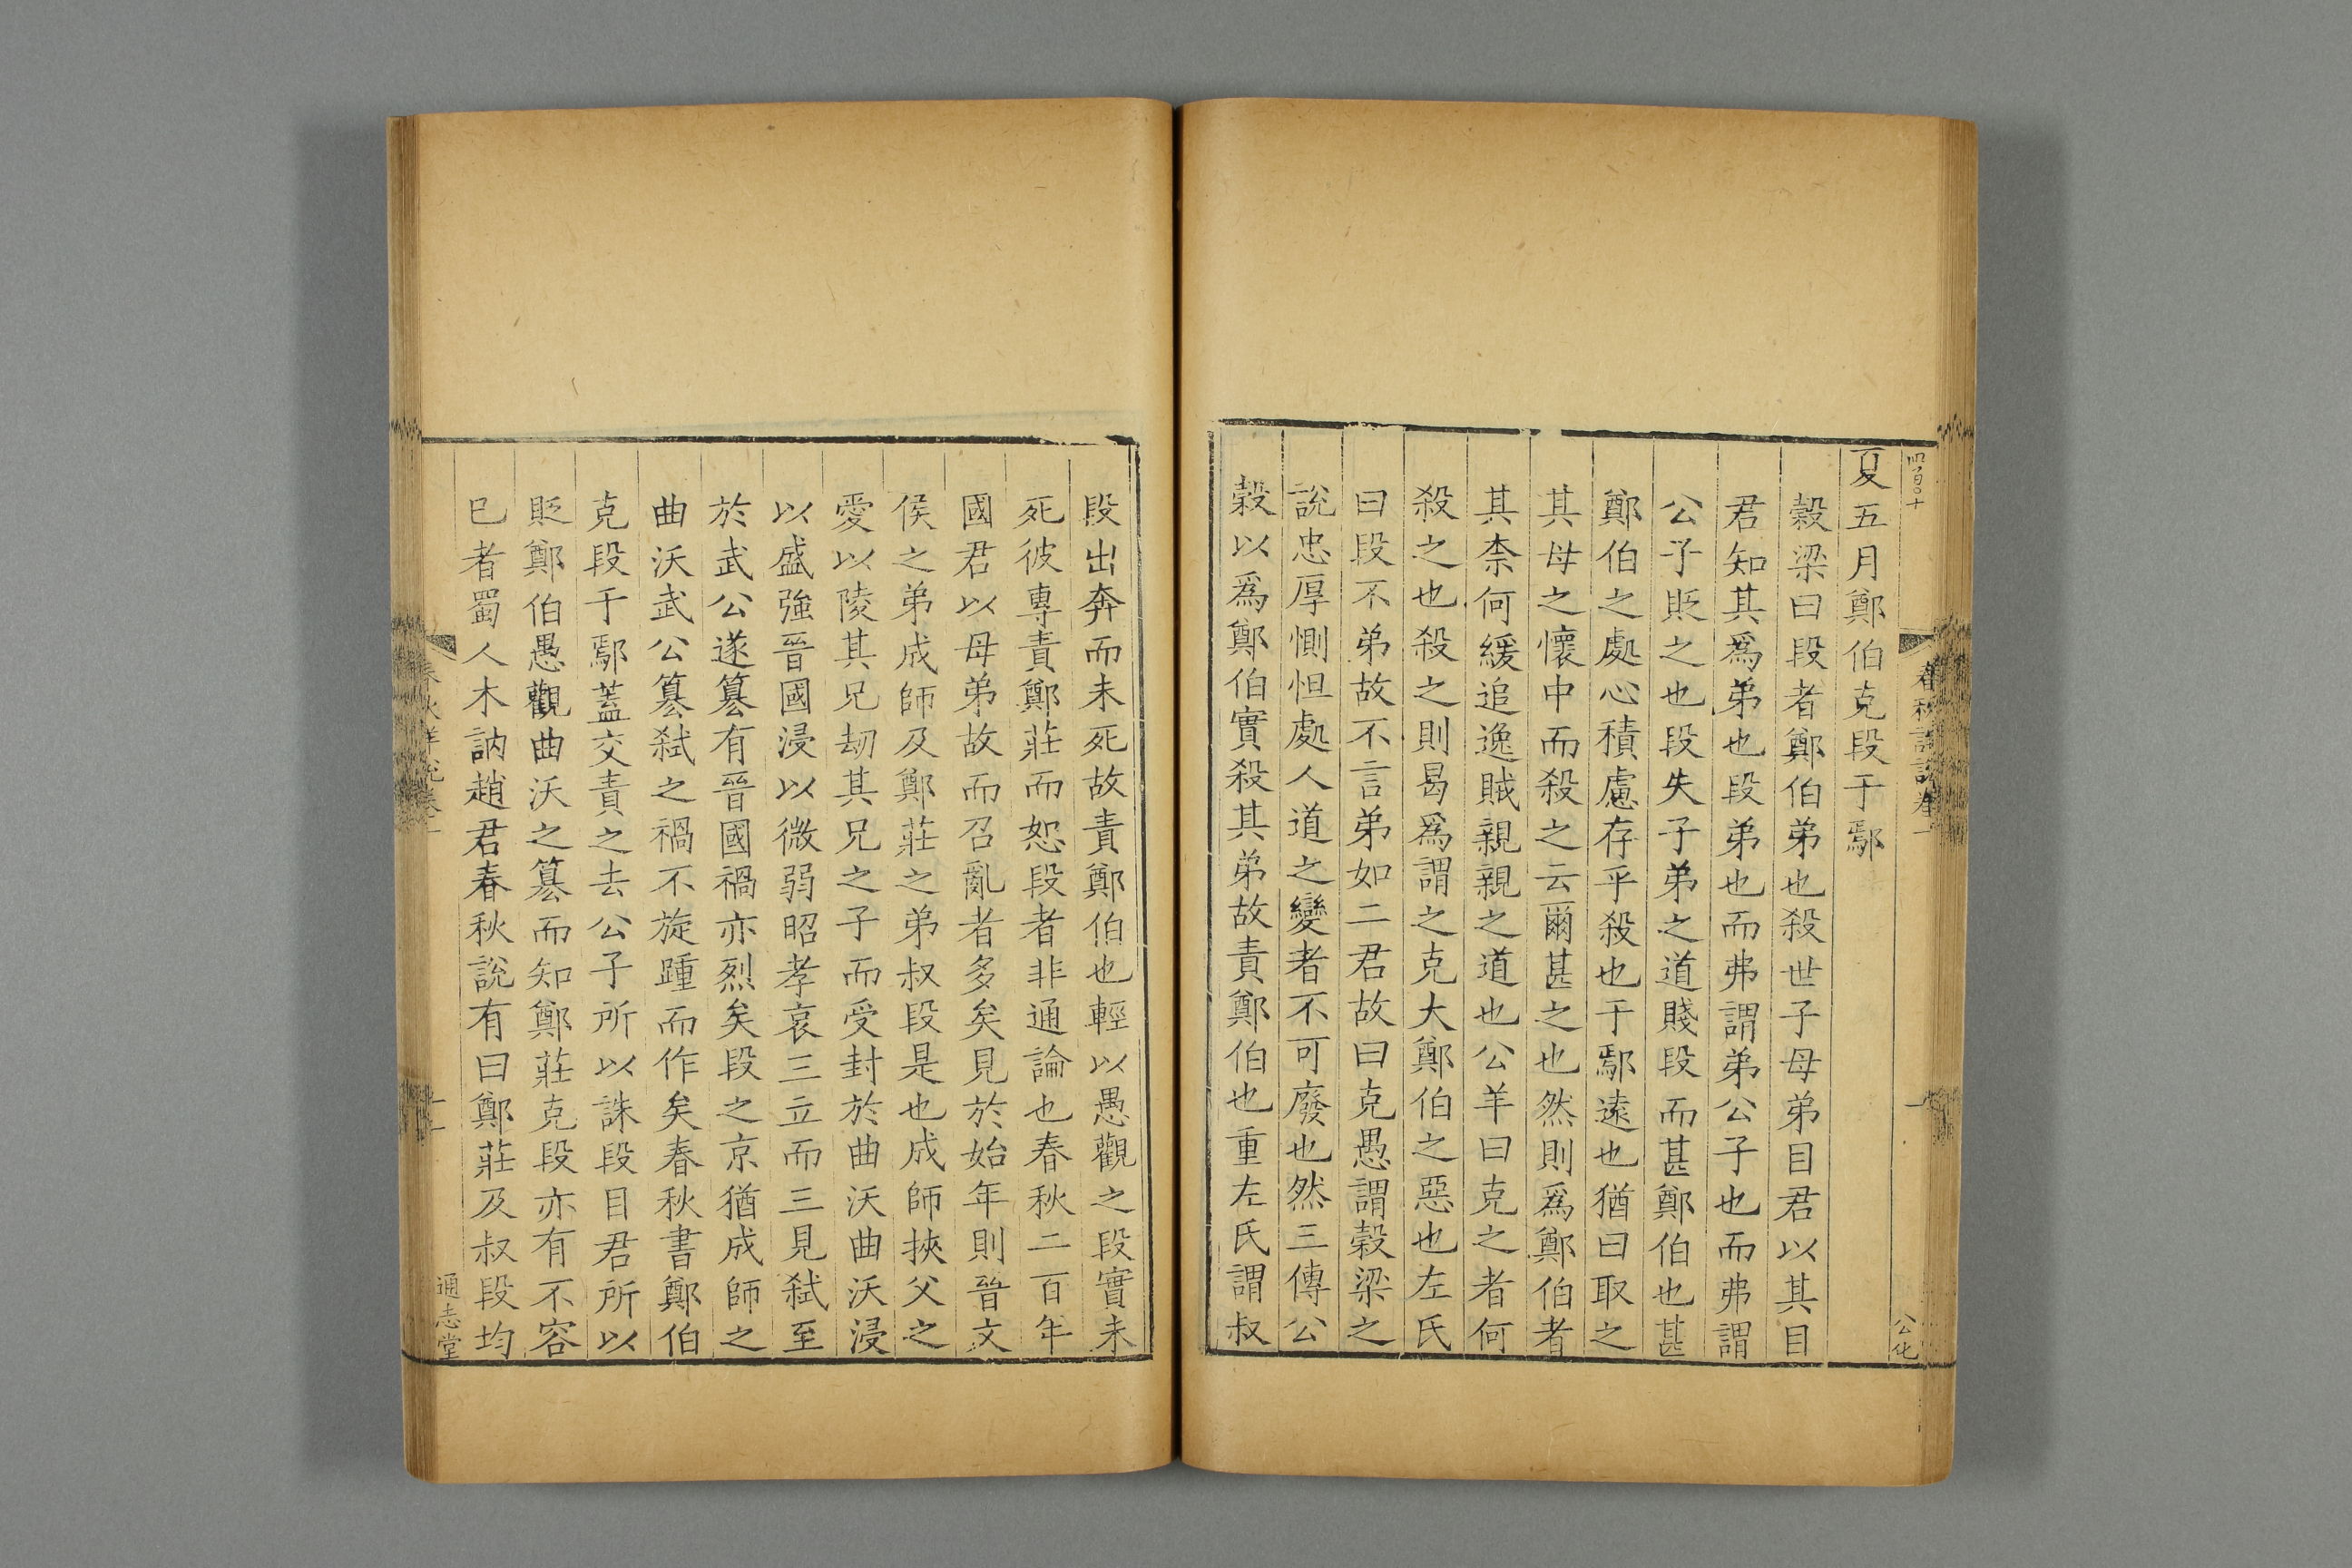 四百〇十
春秋詳說卷一
一
公化
夏五月鄭伯克段于鄢
穀梁曰段者鄭伯弟也殺世子母弟目君以其目
君知其爲弟也段弟也而弗謂弟公子也而弗謂
公子貶之也段失子弟之道賤段而甚鄭伯也甚
鄭伯之處心積慮存乎殺也于鄢遠也猶曰取之
其母之懷中而殺之云爾甚之也然則爲鄭伯者
其柰何緩追逸賊親親之道也公羊曰克之者何
殺之也殺之則曷爲謂之克大鄭伯之惡也左氏
曰段不弟故不言弟如二君故曰克愚謂穀梁之
說忠厚惻怛處人道之變者不可廢也然三傳公
穀以爲鄭伯實殺其弟故責鄭伯也重左氏謂叔
段出奔而未死故責鄭伯也輕以愚觀之段實未
死彼專責鄭莊而恕段者非通論也春秋二百年
國君以母弟故而召亂者多矣見於始年則晉文
侯之弟成師及鄭莊之弟叔段是也成師挾父之
愛以陵其兄劫其兄之子而受封於曲沃曲沃浸
以盛強晉國浸以微弱昭孝哀三立而三見弑至
於武公遂簒有晉國禍亦烈矣段之京猶成師之
曲沃武公簒弑之禍不旋踵而作矣春秋書鄭伯
克段于鄢蓋交責之去公子所以誅段目君所以
貶鄭伯愚觀曲沃之簒而知鄭莊克段亦有不容
已者蜀人木訥趙君春秋說有曰鄭莊及叔段均
春秋詳說卷一
通志堂